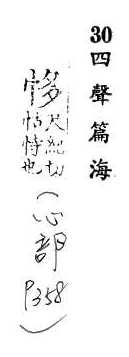 30四聲篇海
恀尺紙切怙恃也(心部P358)